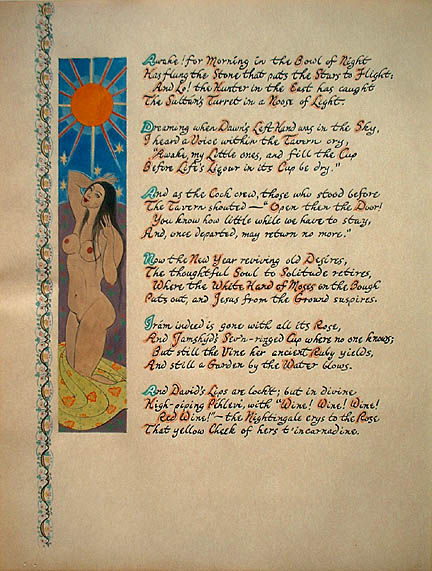 Awake! for Morning in the Bowl of Night
Has flung the Stone that puts the Stars to Flight:
And Lo! the Hunter in the East has caught
The Sultan's Turret in a Noose of Light.
Dreaming when Dawn's Left Hand was in the Sky,
I heard a Voice within the Tavern cry,
"Awake, my Little ones, and fill the Cup
Before Life's Liquor in its Cup be dry."
And as the Cock crew, those who stood before
The Tavern shouted—"Open then the Door!
You know how little while we have to stay,
And, once departed, may return no more."
Now the New Year reviving old Desires,
The thoughtful Soul to Solitude retires,
Where the White Hand of Moses on the Bough
Puts out, and Jesus from the Ground suspires.
Irám indeed is gone with all its Rose,
And Jamshýd's Sev'n-ringed Cup where no one knows;
But still the Vine her ancient Ruby yields,
And still a Garden by the Water blows.
And David's Lips are lockt; but in divine
High-piping Péhlevi, with "Wine! Wine! Wine!
Red Wine!"—the Nightingale crys to the Rose
That yellow Cheek of hers t'incarnadine.